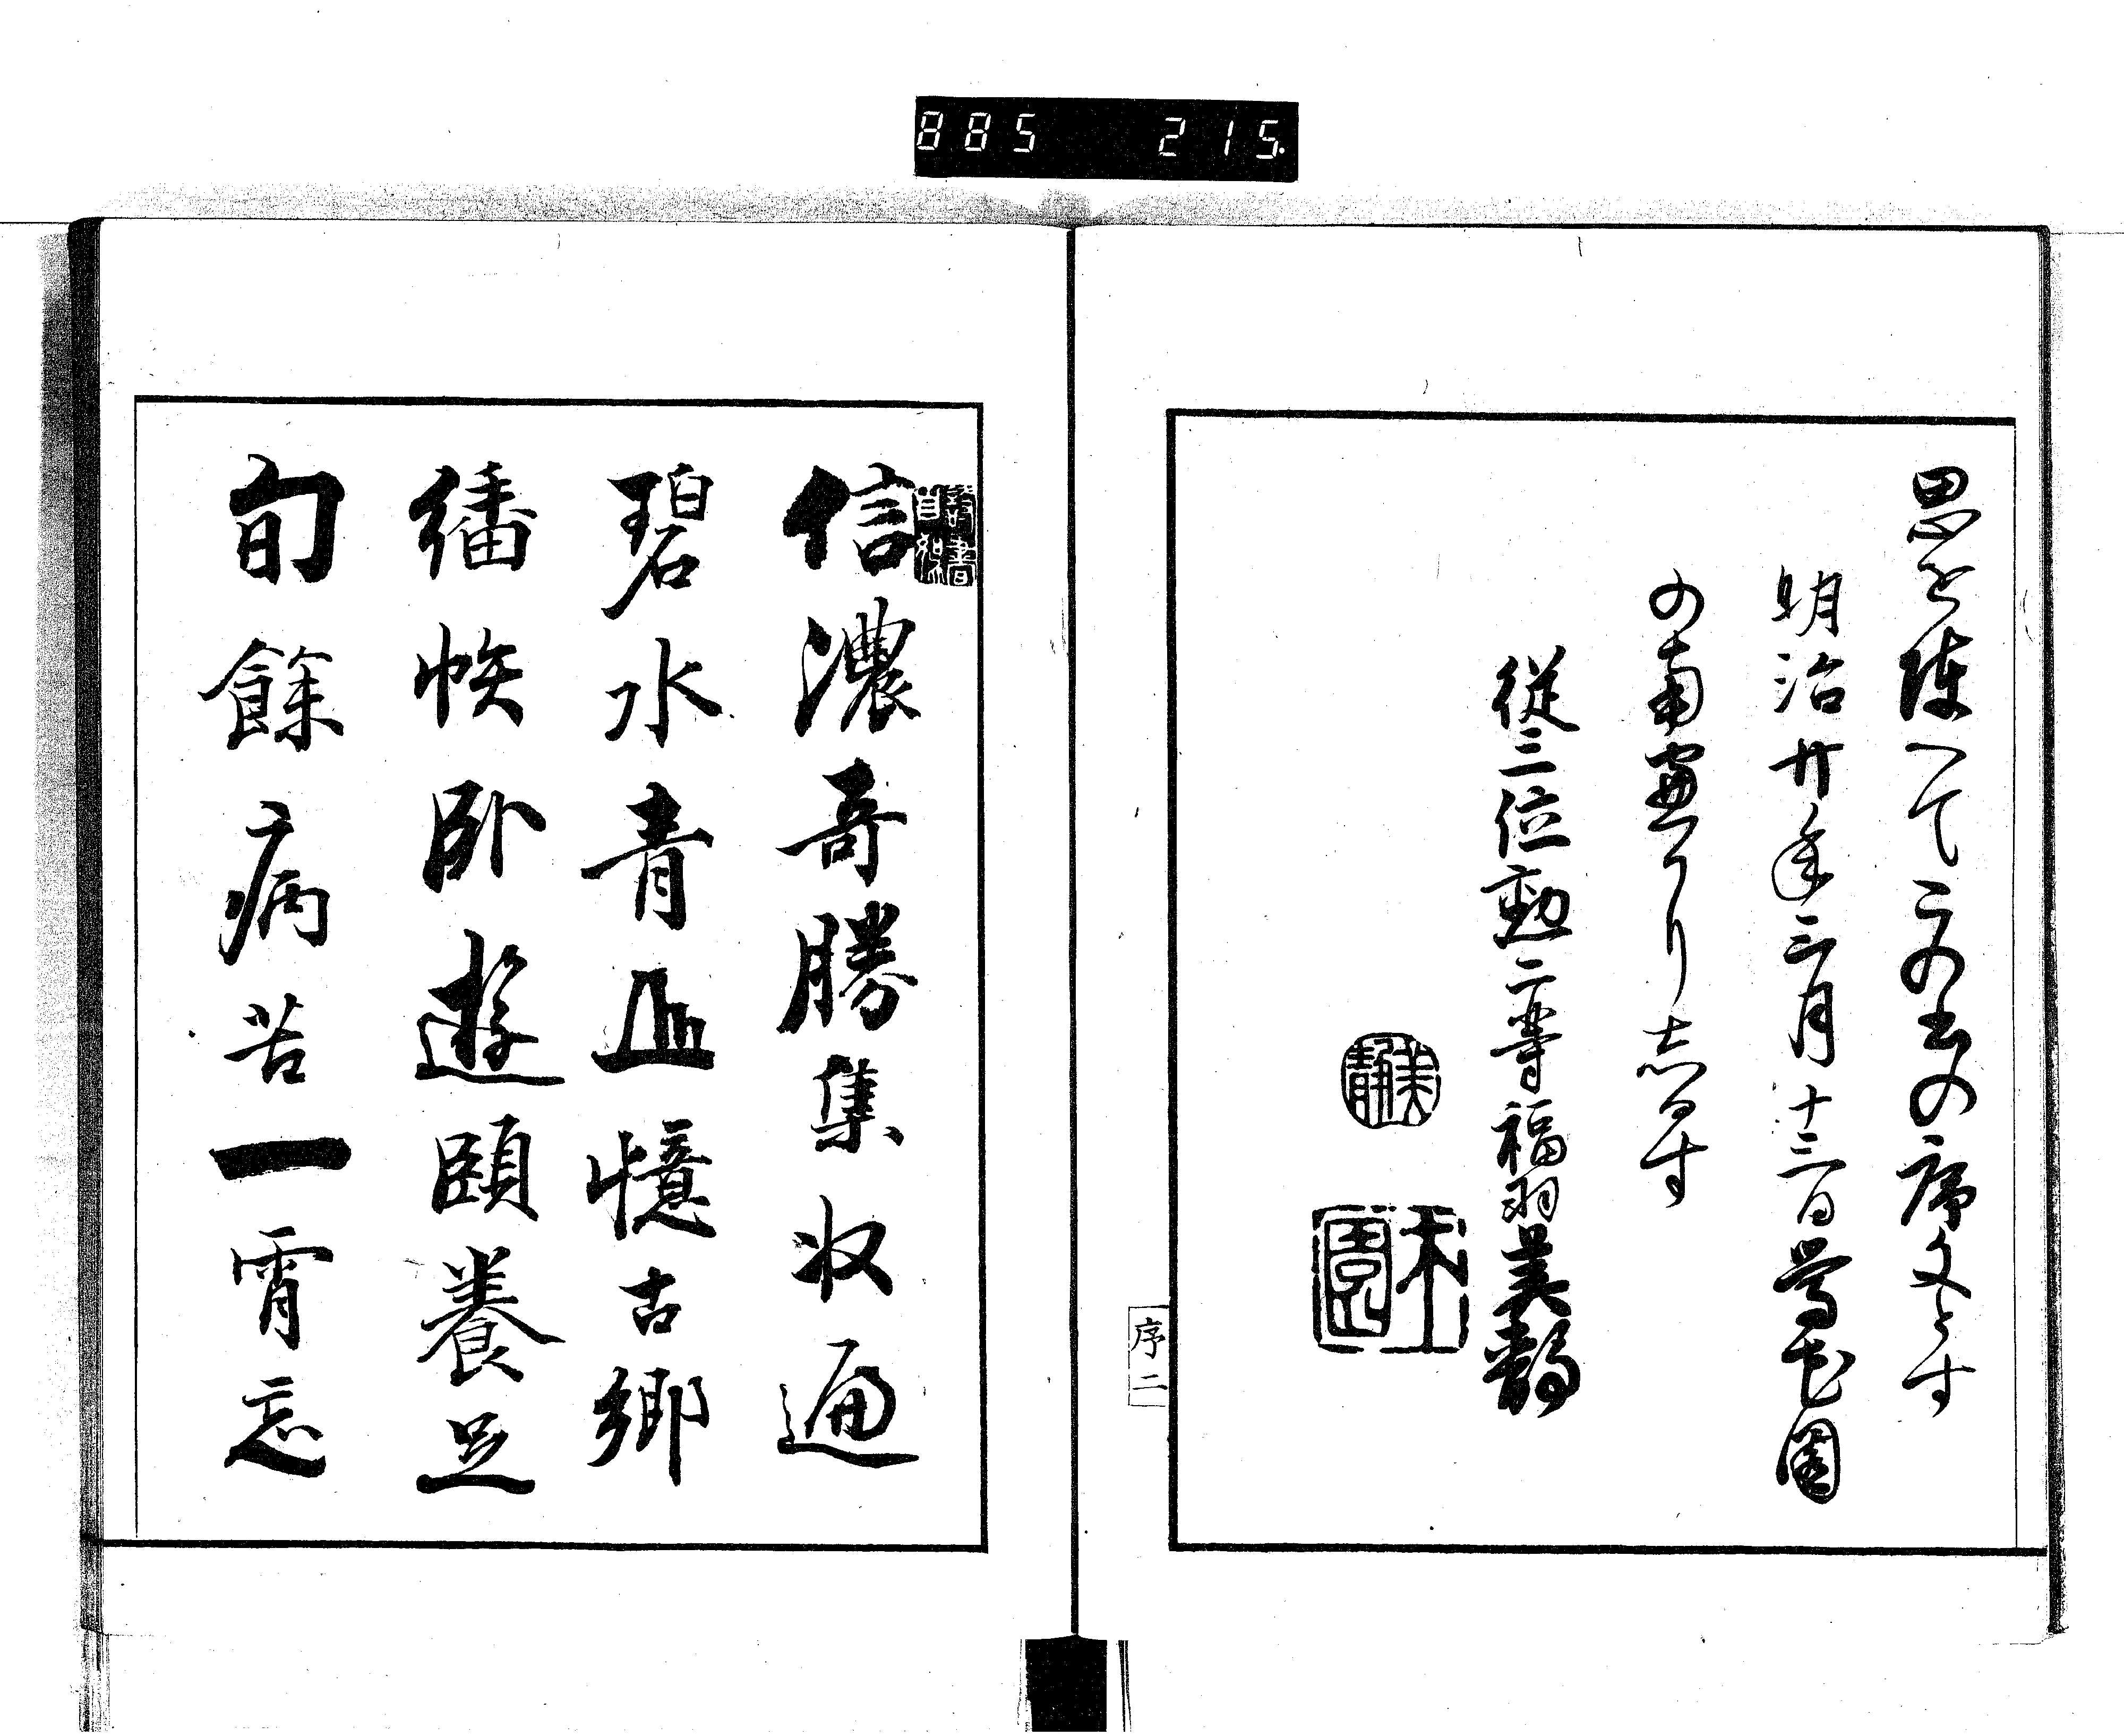 885 215
思を陳へてこの書の序文とす
明治廿年三月十三日夢花園
の南窓により志るす
従三位勲二等福羽美静
美静
木園
序二
信濃奇勝集收遍
碧水青山憶古郷
繙帙卧遊頤養足
旬餘病苦一宵忘